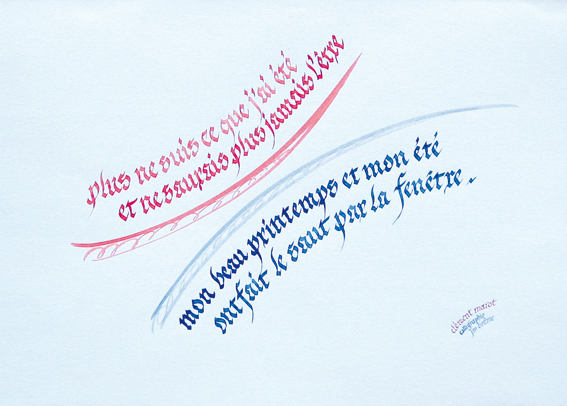 plus ne suis ce que j'ai été
et ne saurais plus jamais l'être
mon beau printemps et mon été
ont fait le saut par la fenêtre.
clément marot
calligraphie